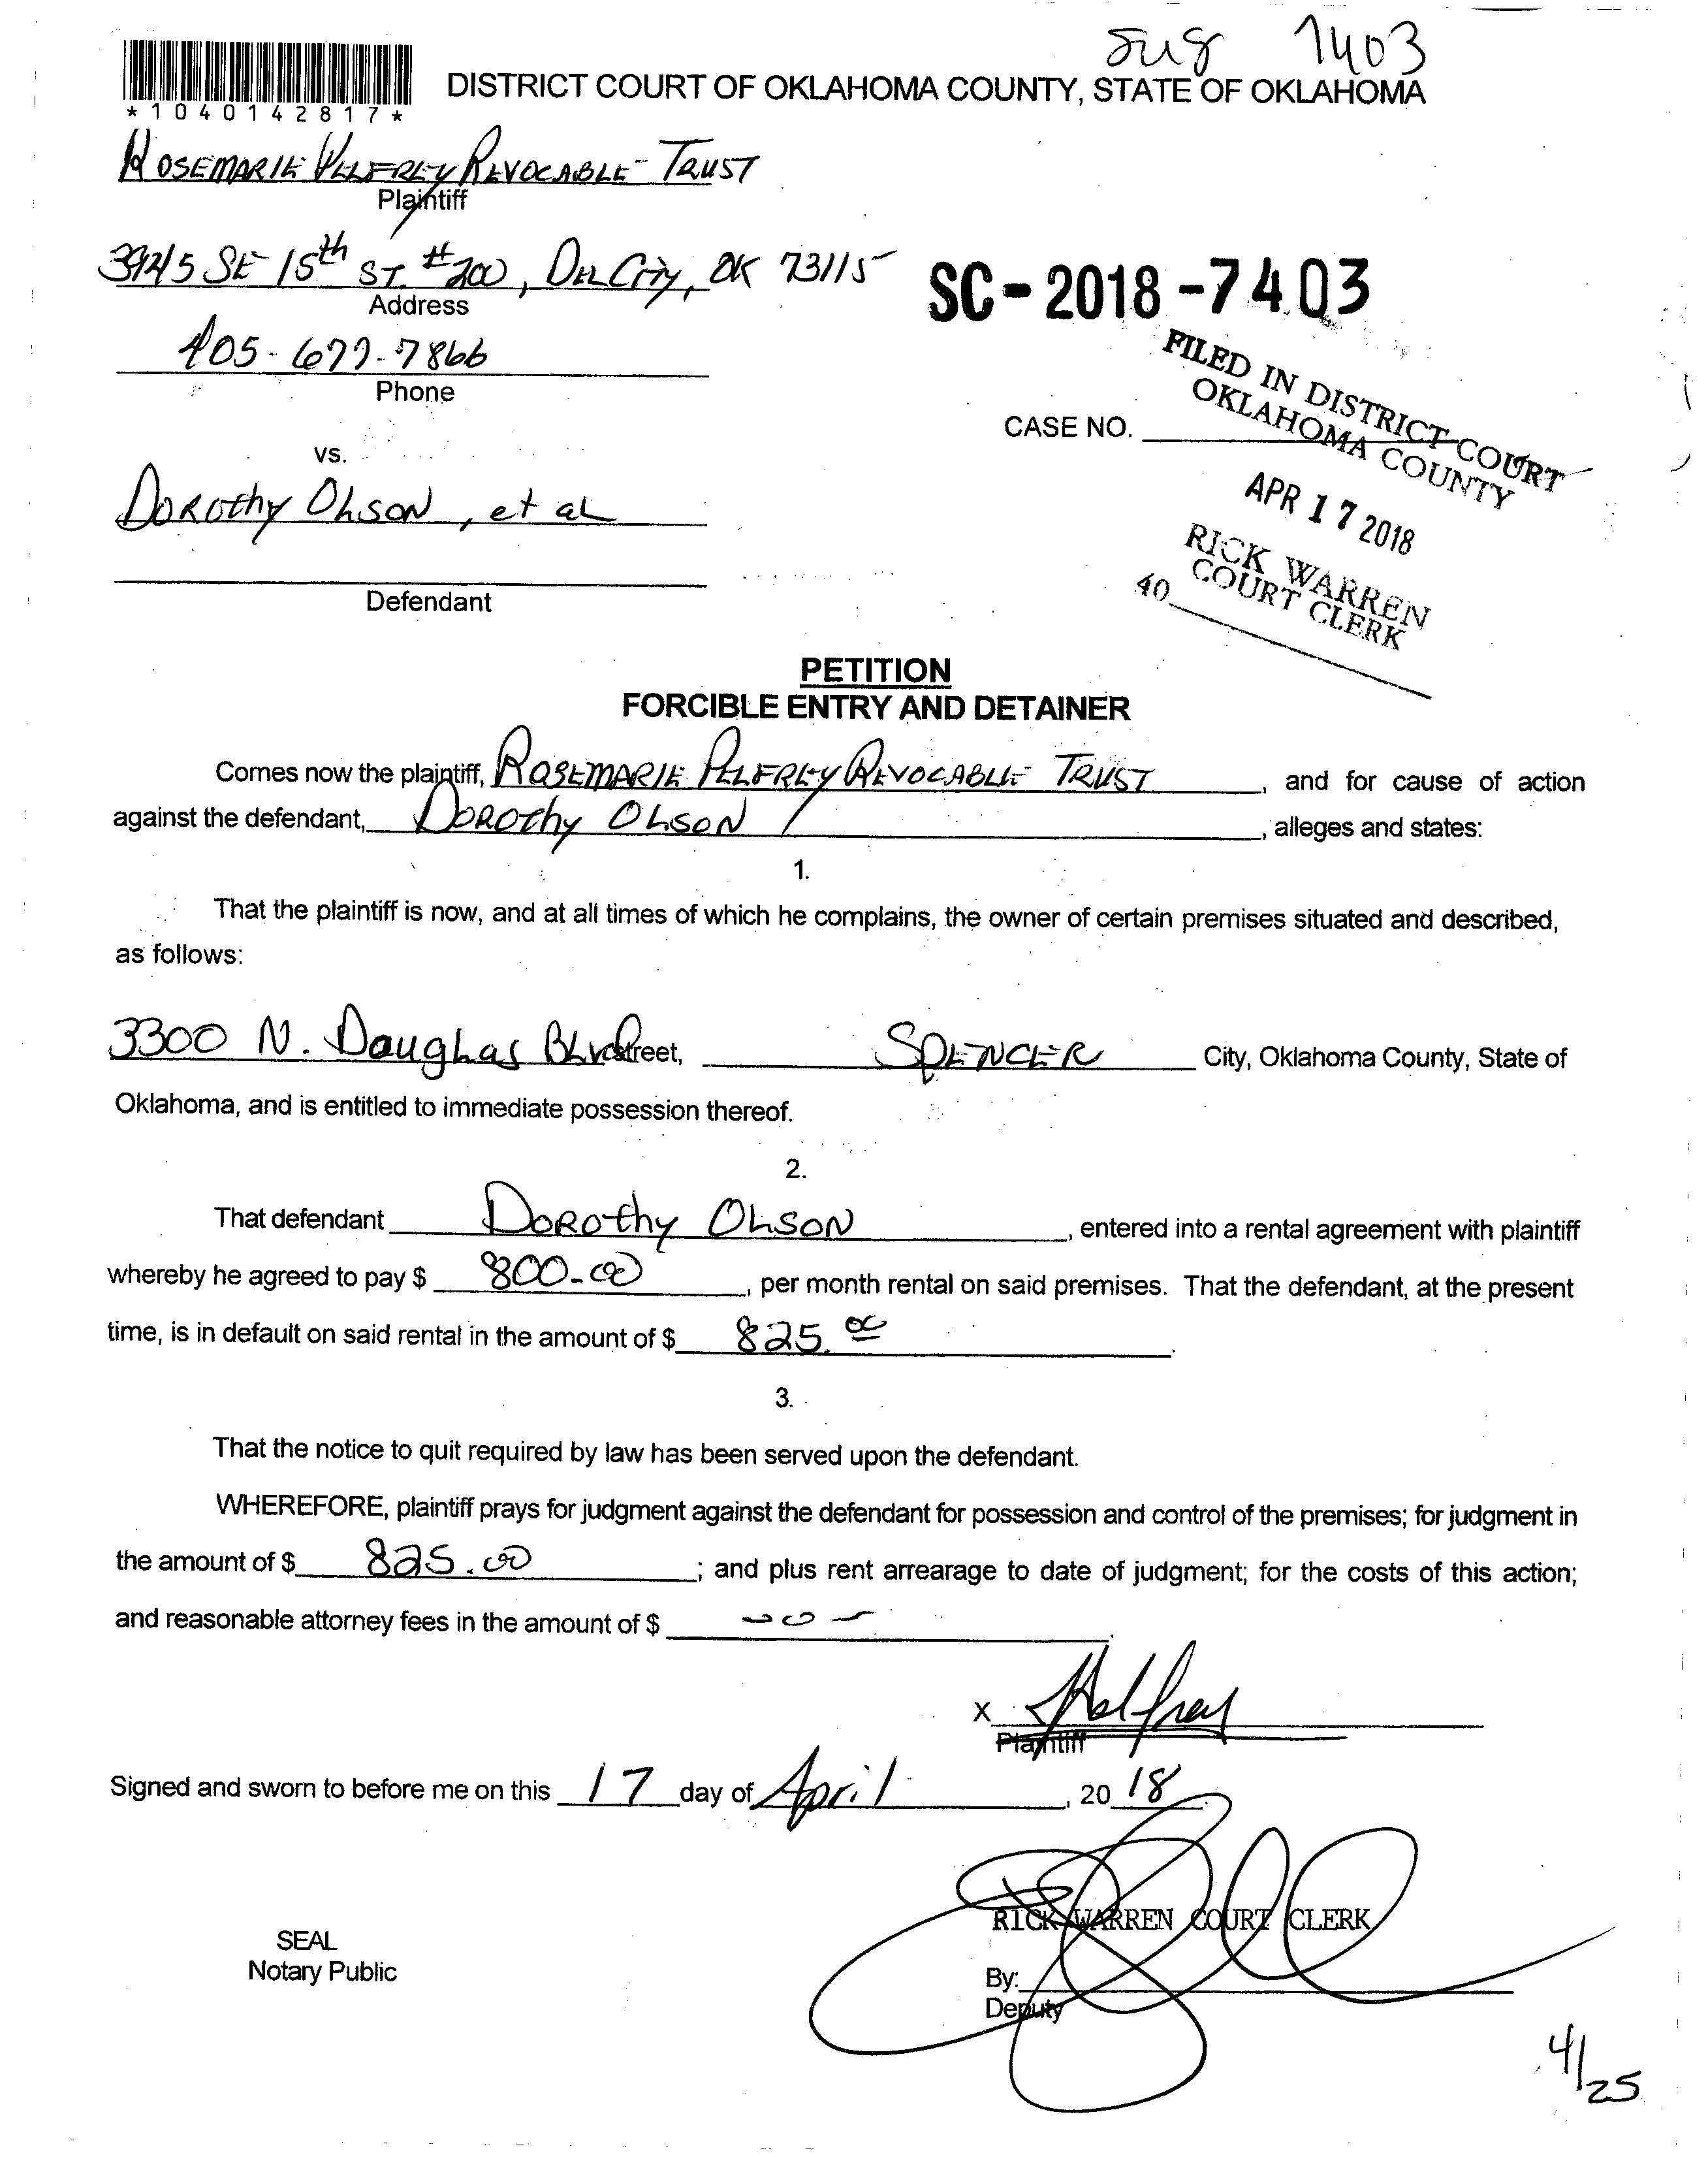 7403
*1040142817*
DISTRICT COURT OF OKLAHOMA COUNTY, STATE OF OKLAHOMA
ROSEMARIE PELFREY REVOCABLE TRUST
Plaintiff
SE 15th ST. #200, DEL CITY, OK 73115
Address
SC-2018-7403
405-677-7866
Phone
FILED IN DISTRICT COURT
OKLAHOMA COUNTY
CASE NO.
vs.
APR 17 2018
DOROthy OLSON, et aL
RICK WARREN
COURT CLERK
40
Defendant
PETITION
FORCIBLE ENTRY AND DETAINER
Comes now the plaintiff, ROSEMARIE PELFREY REVOCABLE TRUST, and for cause of action
against the defendant, DOROthy OLSON, alleges and states:
1.
That the plaintiff is now, and at all times of which he complains, the owner of certain premises situated and described,
as follows:
3300 N. DougLas BLvd Street, SPENCER City, Oklahoma County, State of
Oklahoma, and is entitled to immediate possession thereof.
2.
That defendant DOROthy OLSON, entered into a rental agreement with plaintiff
whereby he agreed to pay $ 800.00, per month rental on said premises. That the defendant, at the present
time, is in default on said rental in the amount of $ 825.00.
3.
That the notice to quit required by law has been served upon the defendant.
WHEREFORE, plaintiff prays for judgment against the defendant for possession and control of the premises; for judgment in
the amount of $ 825.00; and plus rent arrearage to date of judgment; for the costs of this action;
and reasonable attorney fees in the amount of $ -0-.
X Pelfrey
Plaintiff
Signed and sworn to before me on this 17 day of April, 2018.
RICK WARREN COURT CLERK
SEAL
Notary Public
By:
Deputy
4/25